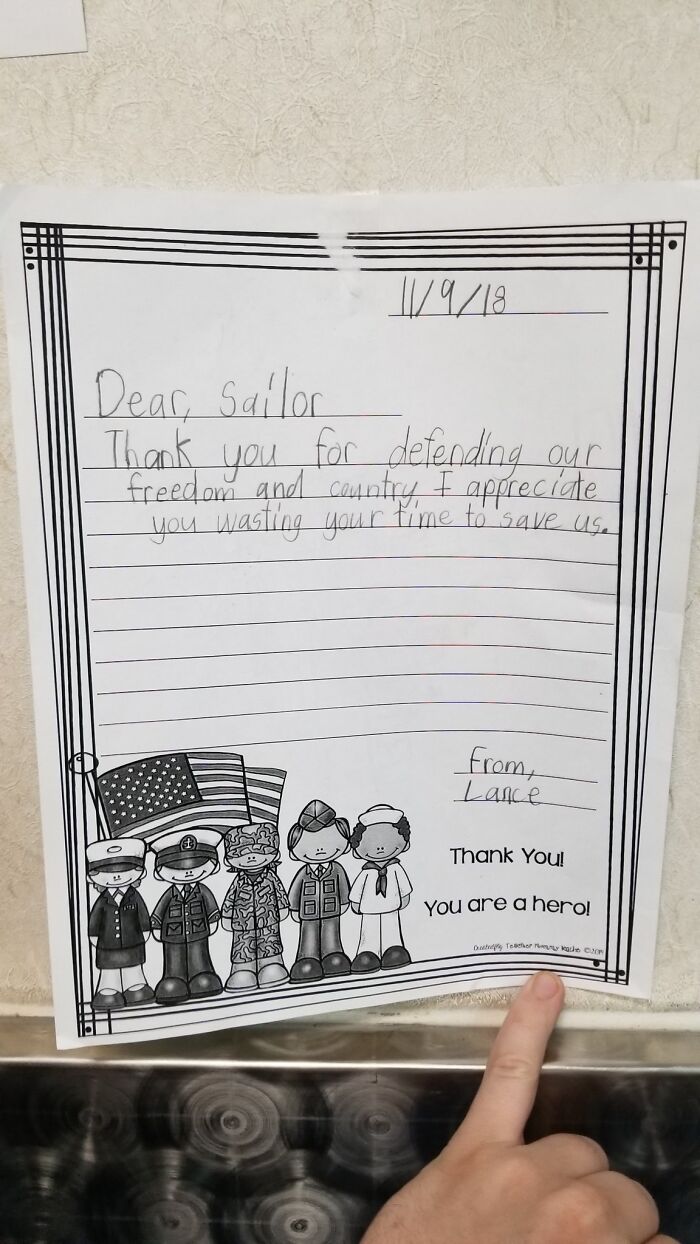 11/9/18
Dear, Sailor
Thank you for defending our
freedom and country. I appreciate
you wasting your time to save us.
From,
Lance
Thank You!
You are a hero!
©2014